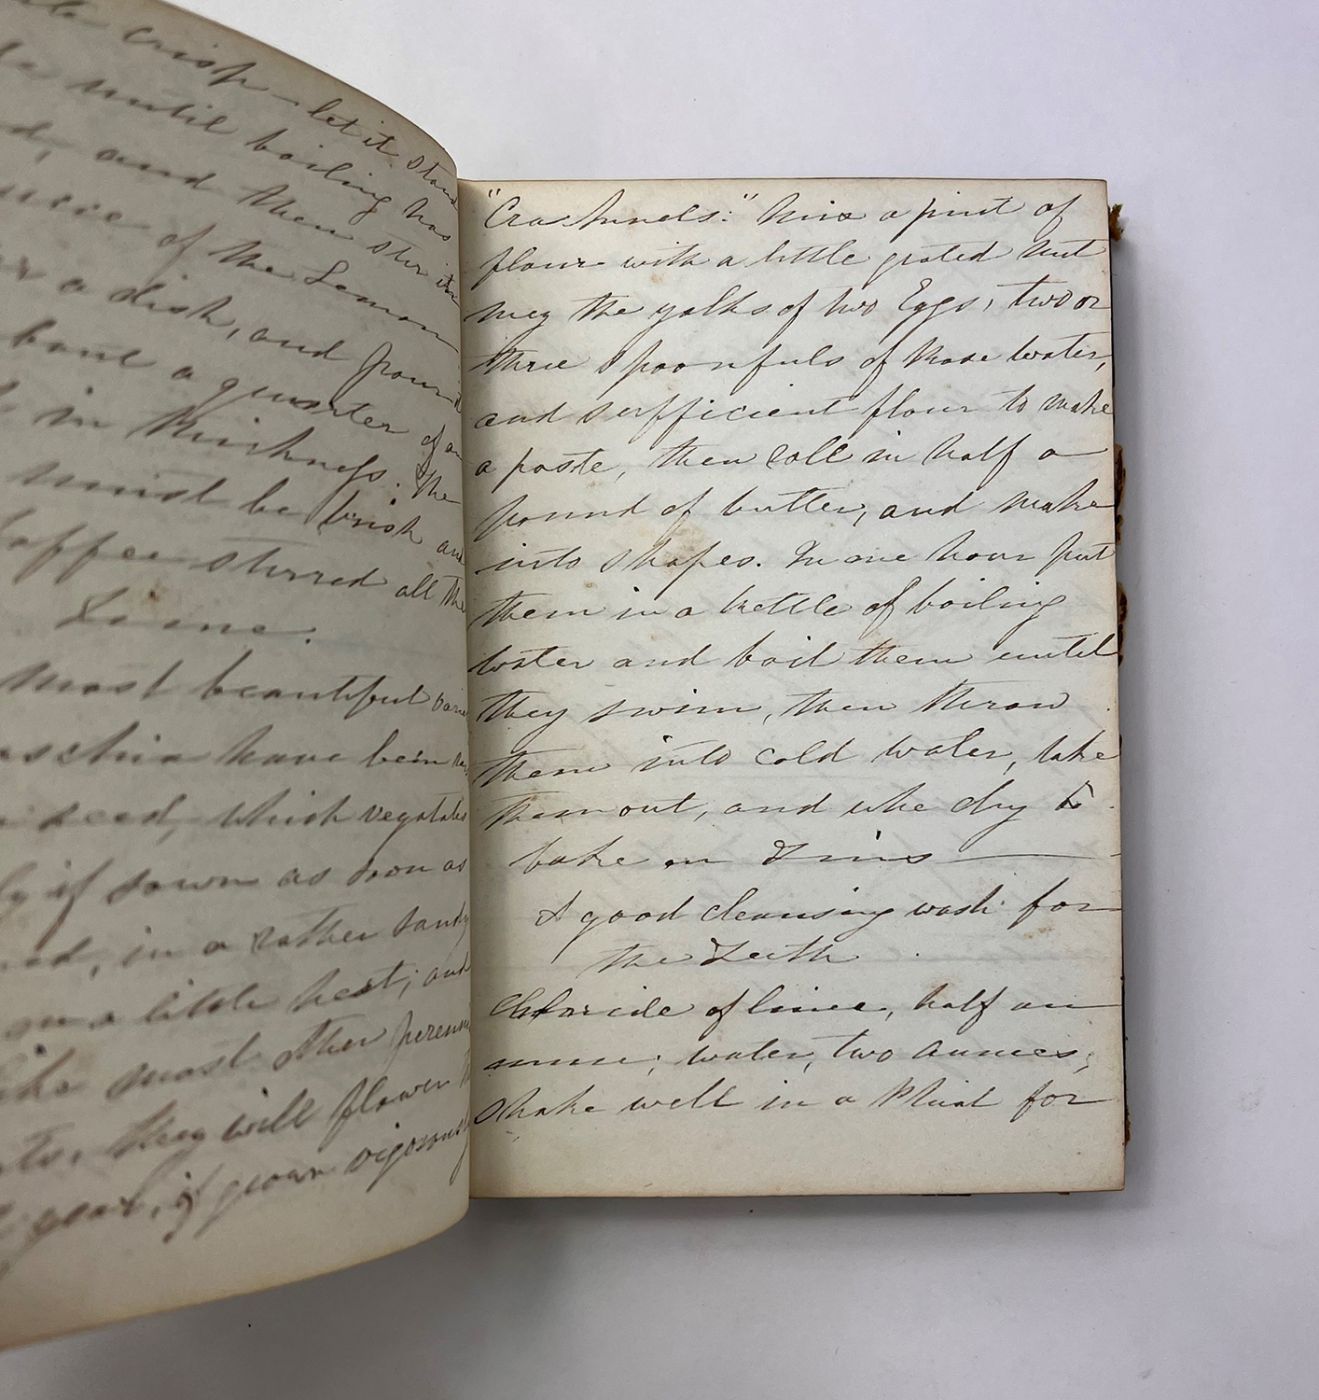 crisp - let it stand
until boiling has
and then stir in
juice of the Lemon
a dish, and pour it
bout a quarter of an
in thickness. The
must be brisk and
Coffee stirred all the
time.
most beautiful
have been
seed, which vegetates
if sown as soon as
in a rather sandy
on a little heat; and
like most other
they will flower
year, if grown vigorously
"Cracknels:" Mix a pint of
flour with a little grated Nut
meg the yolks of two Eggs, two or
three spoonfuls of Rose water,
and sufficient flour to make
a paste, then roll in half a
pound of butter, and make
into shapes. In one hour put
them in a kettle of boiling
water and boil them until
they swim, then throw
them into cold water, take
them out, and whe dry
bake on Tins
A good cleansing wash for
the Teeth
Chloride of lime, half an
ounce; water, two ounces;
shake well in a Phial for